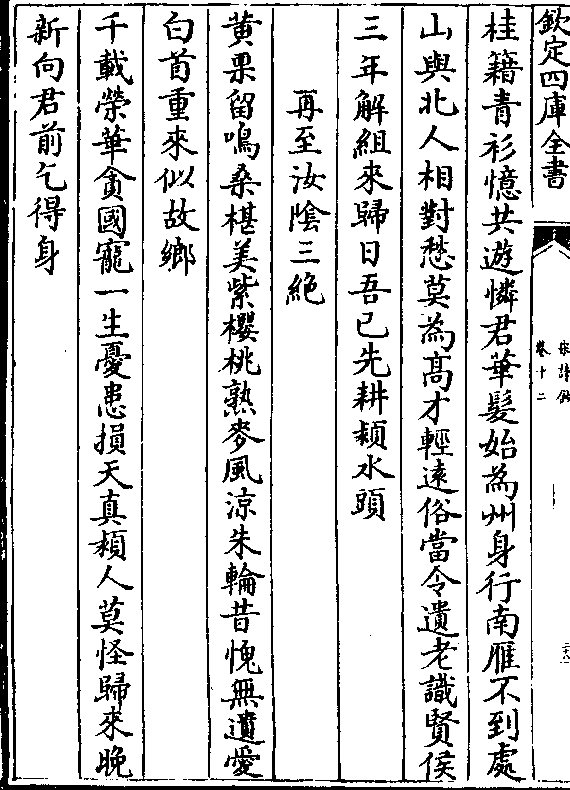 欽定四庫全書
宋詩鈔
卷十二
桂籍青衫憶共遊憐君華髮始為州身行南雁不到處
山與北人相對愁莫為高才輕遠俗當令遺老識賢侯
三年解組來歸日吾已先耕潁水頭
再至汝陰三絶
黄栗留鳴桑椹美紫櫻桃熟麥風涼朱輪昔愧無遺愛
白首重來似故鄉
千載榮華貪國寵一生憂患損天真潁人莫怪歸來晚
新向君前乞得身